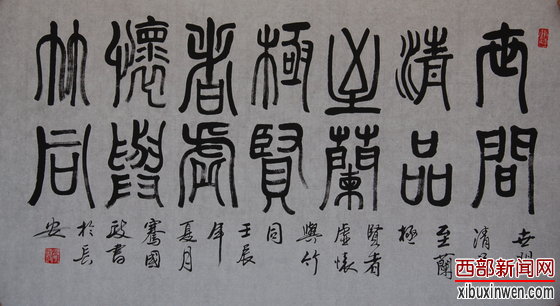 世間
清品
至蘭
極賢
者虛
懷與
竹同
世間
清品
至蘭
極
賢者
虛懷
與竹
同
壬辰
年
夏月
騫國
政書
於長
安
西部新闻网
www.xibuxinwen.com